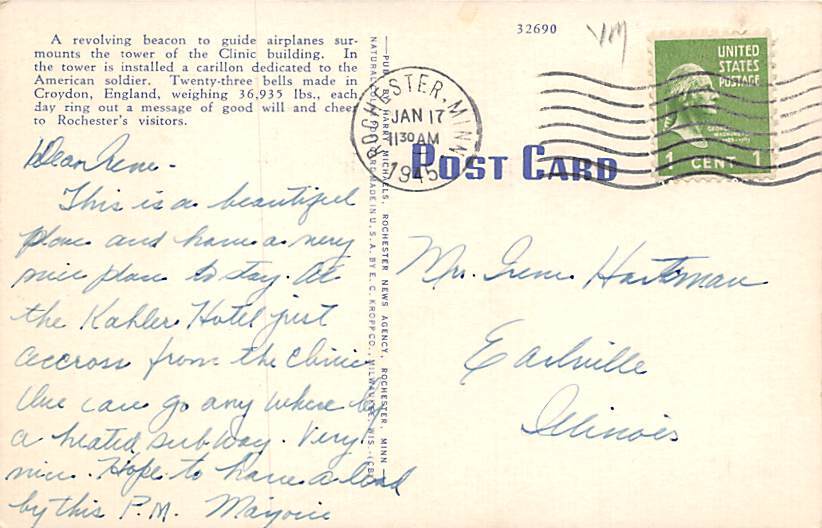 32690
VM
A revolving beacon to guide airplanes sur-
mounts the tower of the Clinic building. In
the tower is installed a carillon dedicated to the
American soldier. Twenty-three bells made in
Croydon, England, weighing 36,935 lbs., each
day ring out a message of good will and cheer
to Rochester's visitors.
ROCHESTER, MINN.
JAN 17
11 30 AM
1945
UNITED
STATES
POSTAGE
1 CENT 1
POST CARD
—PUB. BY HARRY MICHAELS, ROCHESTER NEWS AGENCY, ROCHESTER, MINN.
MADE IN U.S.A. BY E. C. KROPP CO., MILWAUKEE, WIS.
Dear Irene -
This is a beautiful
place and have a very
nice place to stay. At
the Kahler Hotel just
accross from the clinic
One can go any where by
a heated subway. Very
nice. Hope to have a
by this P.M. Marjorie
Mrs. Irene Hartsman
Earlville
Illinois